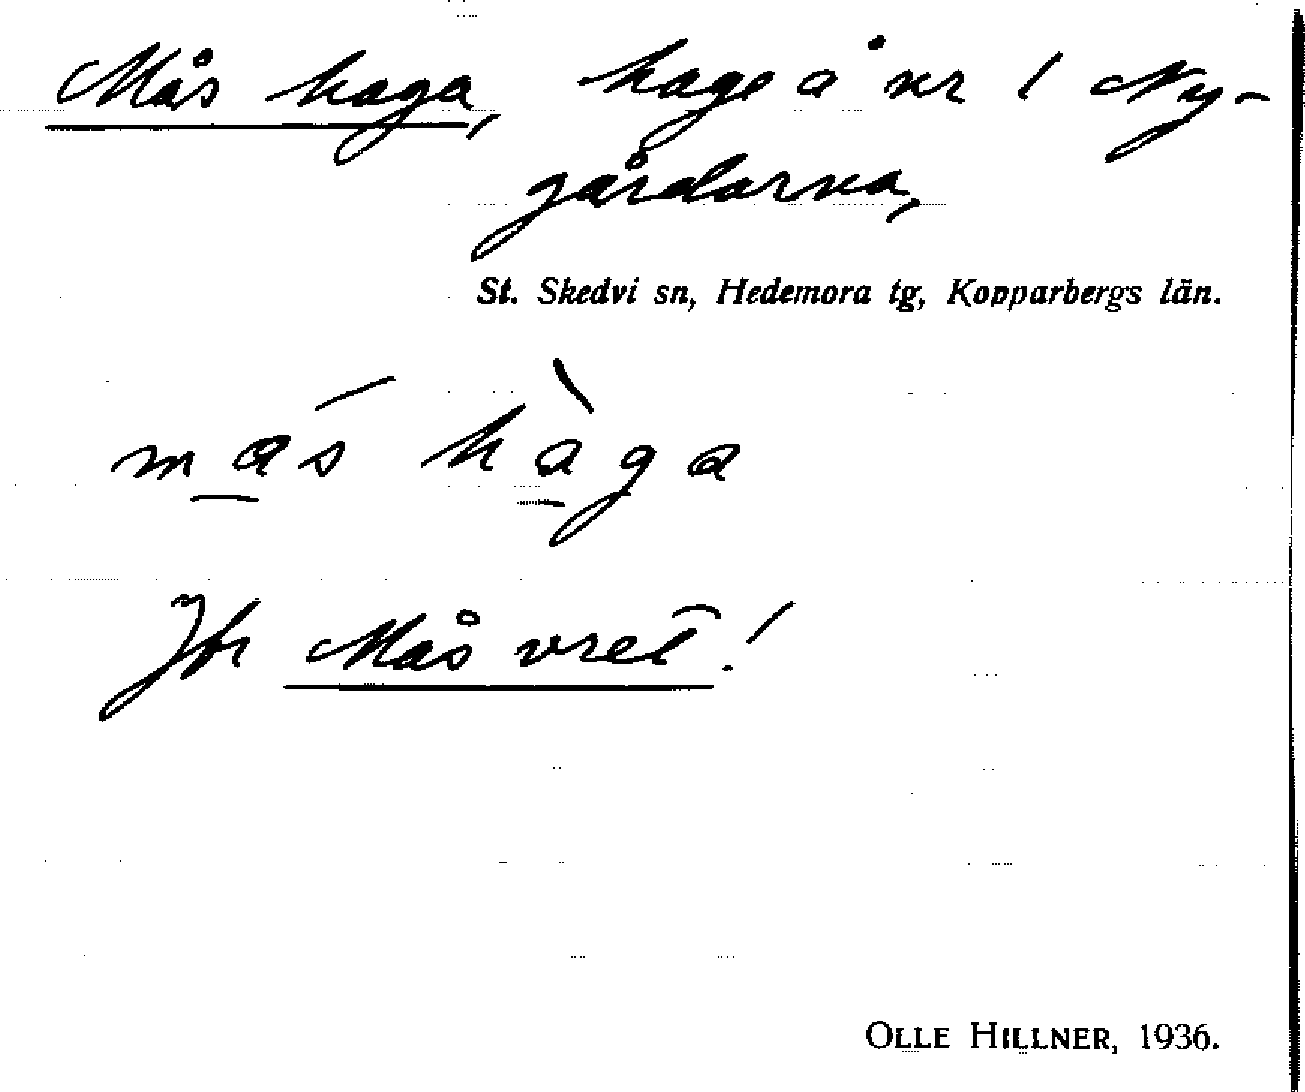 Mås haga, hage å nr 1 Ny-
gårdarna,
St. Skedvi sn, Hedemora tg, Kopparbergs län.
más hàga
Jfr Mås vret!
OLLE HILLNER, 1936.